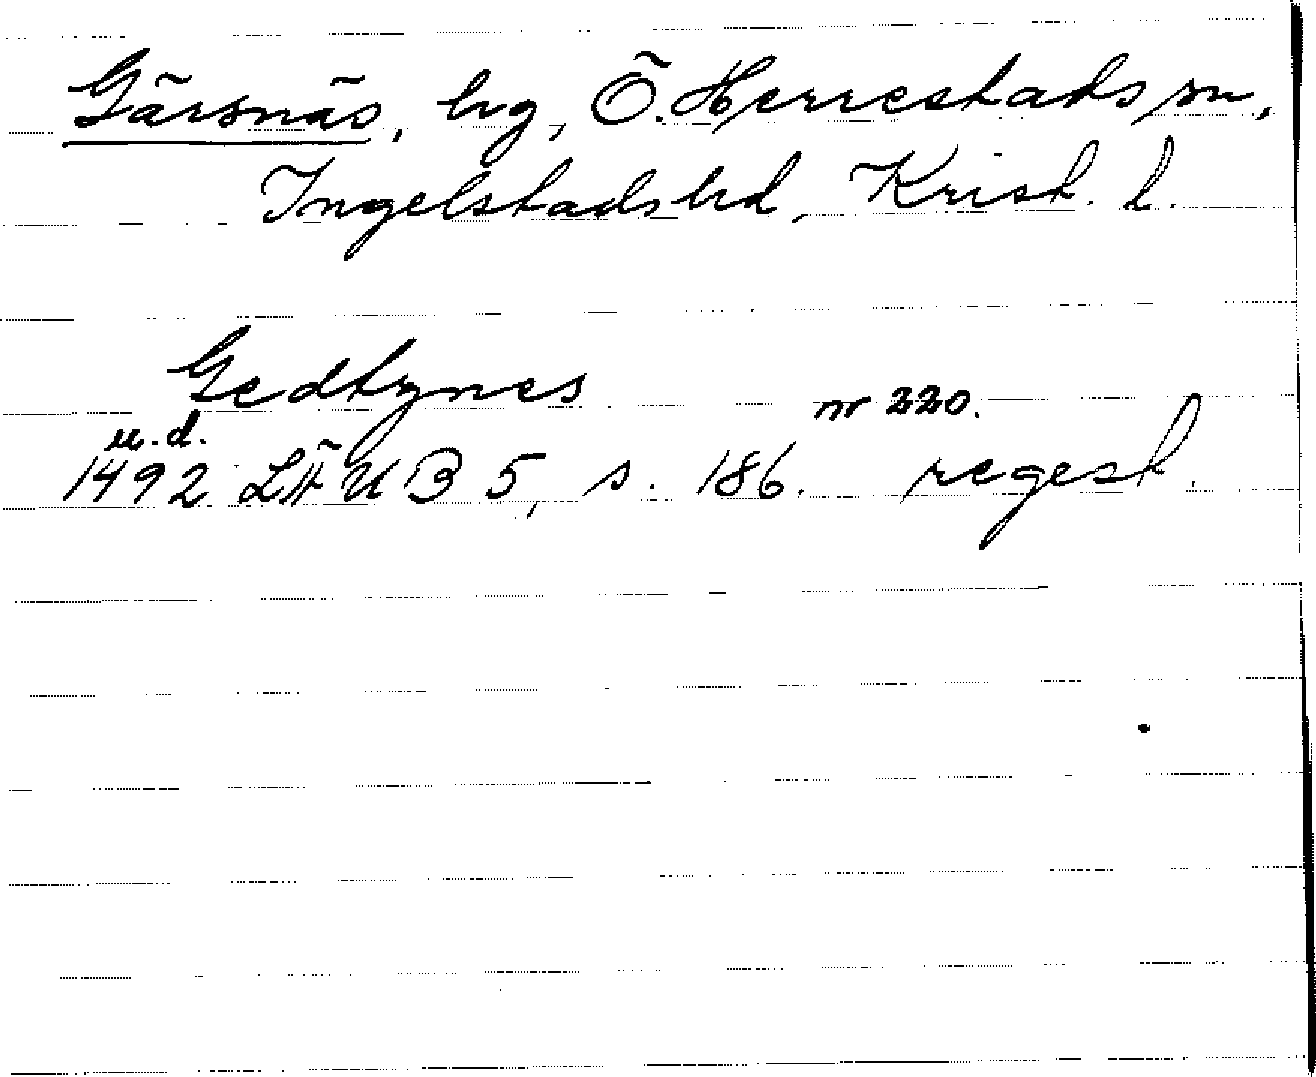 Gärsnäs, hg, Ö. Herrestads sn,
Ingelstads hd, Krist. l.
Gedtznes
nr 220.
u.d.
1492 LÄUB 5, s. 186. regest.